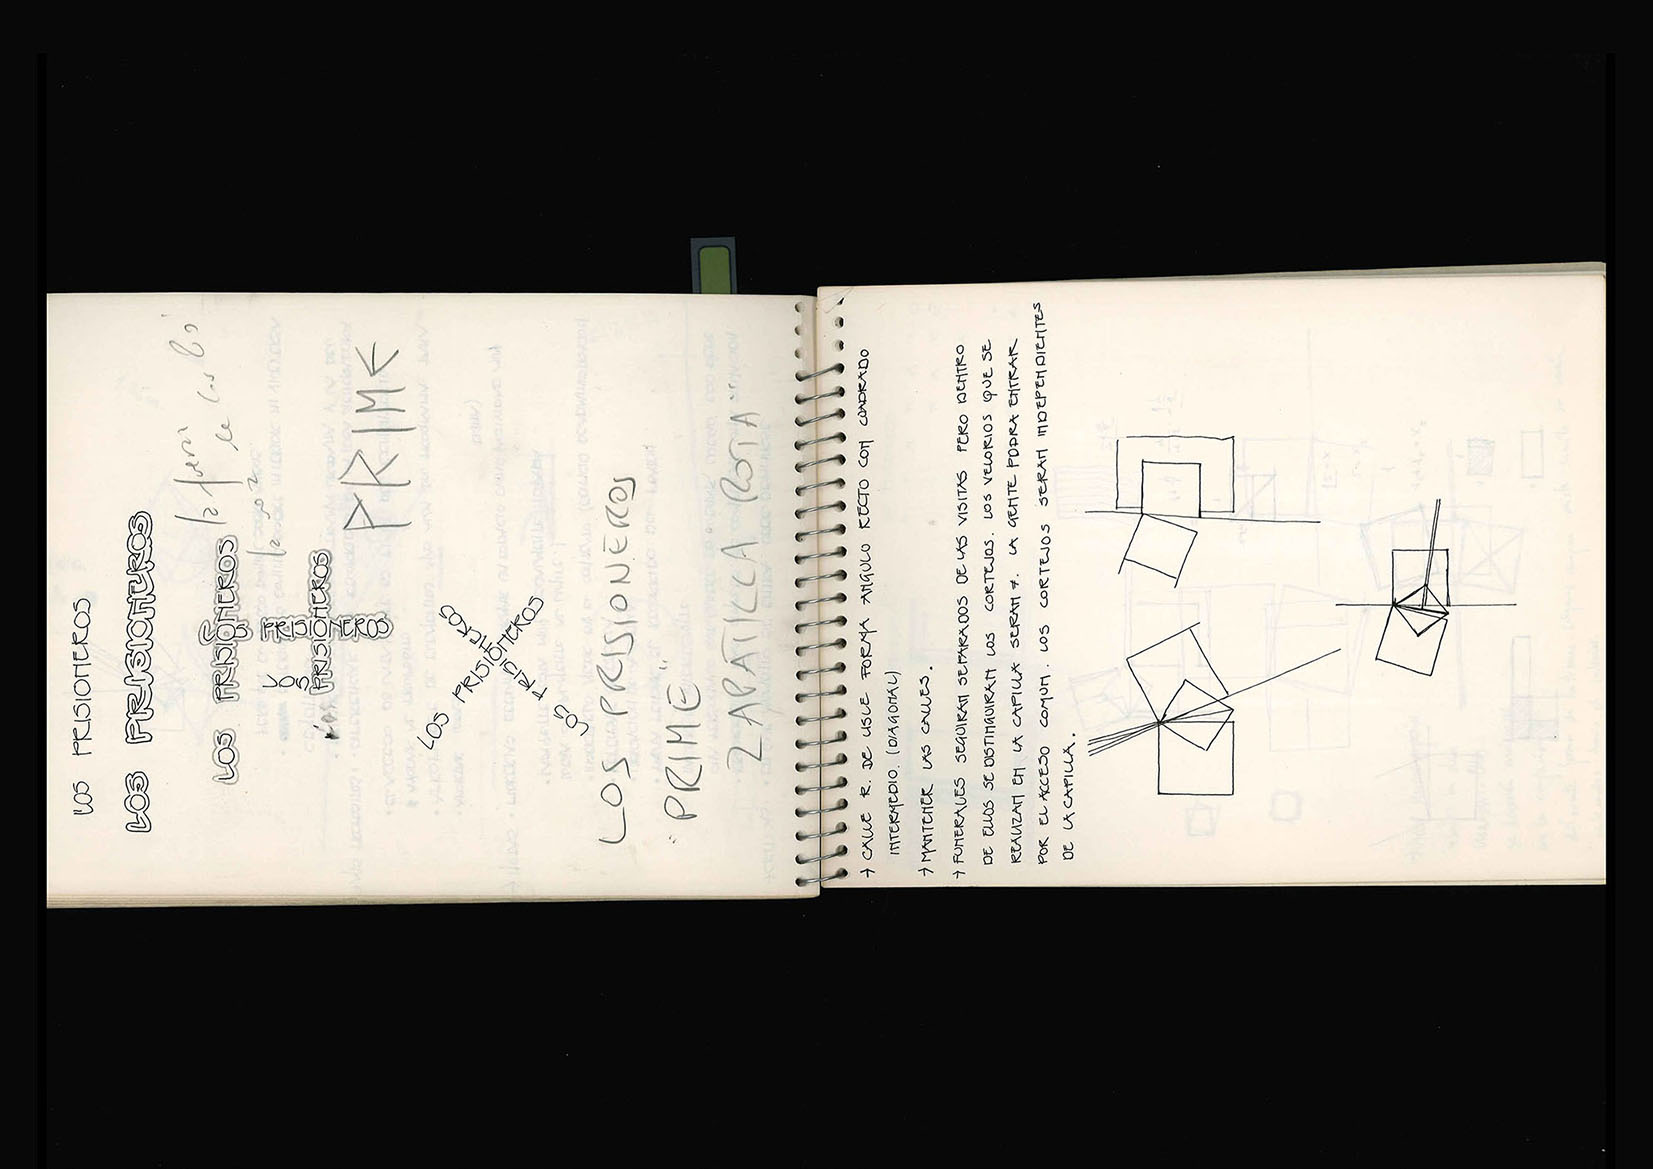 LOS PRISIONEROS
LOS PRISIONEROS
LOS PRISIONEROS
LOS
PRISIONEROS
PRISIONEROS
PRIME
LOS PRISIONEROS
LOS PRISIONEROS
LOS PRISIONEROS
"PRIME"
ZAPATILLA (ROTA)
→ CALLE R. DE LISLE FORMA ANGULO RECTO CON CUADRADO
INTERMEDIO. (DIAGONAL)
→ MANTENER LAS CALLES.
→ FUNERALES SEGUIRAN SEPARADOS DE LAS VISITAS PERO DENTRO
DE ELLOS SE DISTINGUIRAN LOS CORTEJOS. LOS VELORIOS QUE SE
REALIZAN EN LA CAPILLA SERAN 7. LA GENTE PODRA ENTRAR
POR EL ACCESO COMUN. LOS CORTEJOS SERAN INDEPENDIENTES
DE LA CAPILLA.